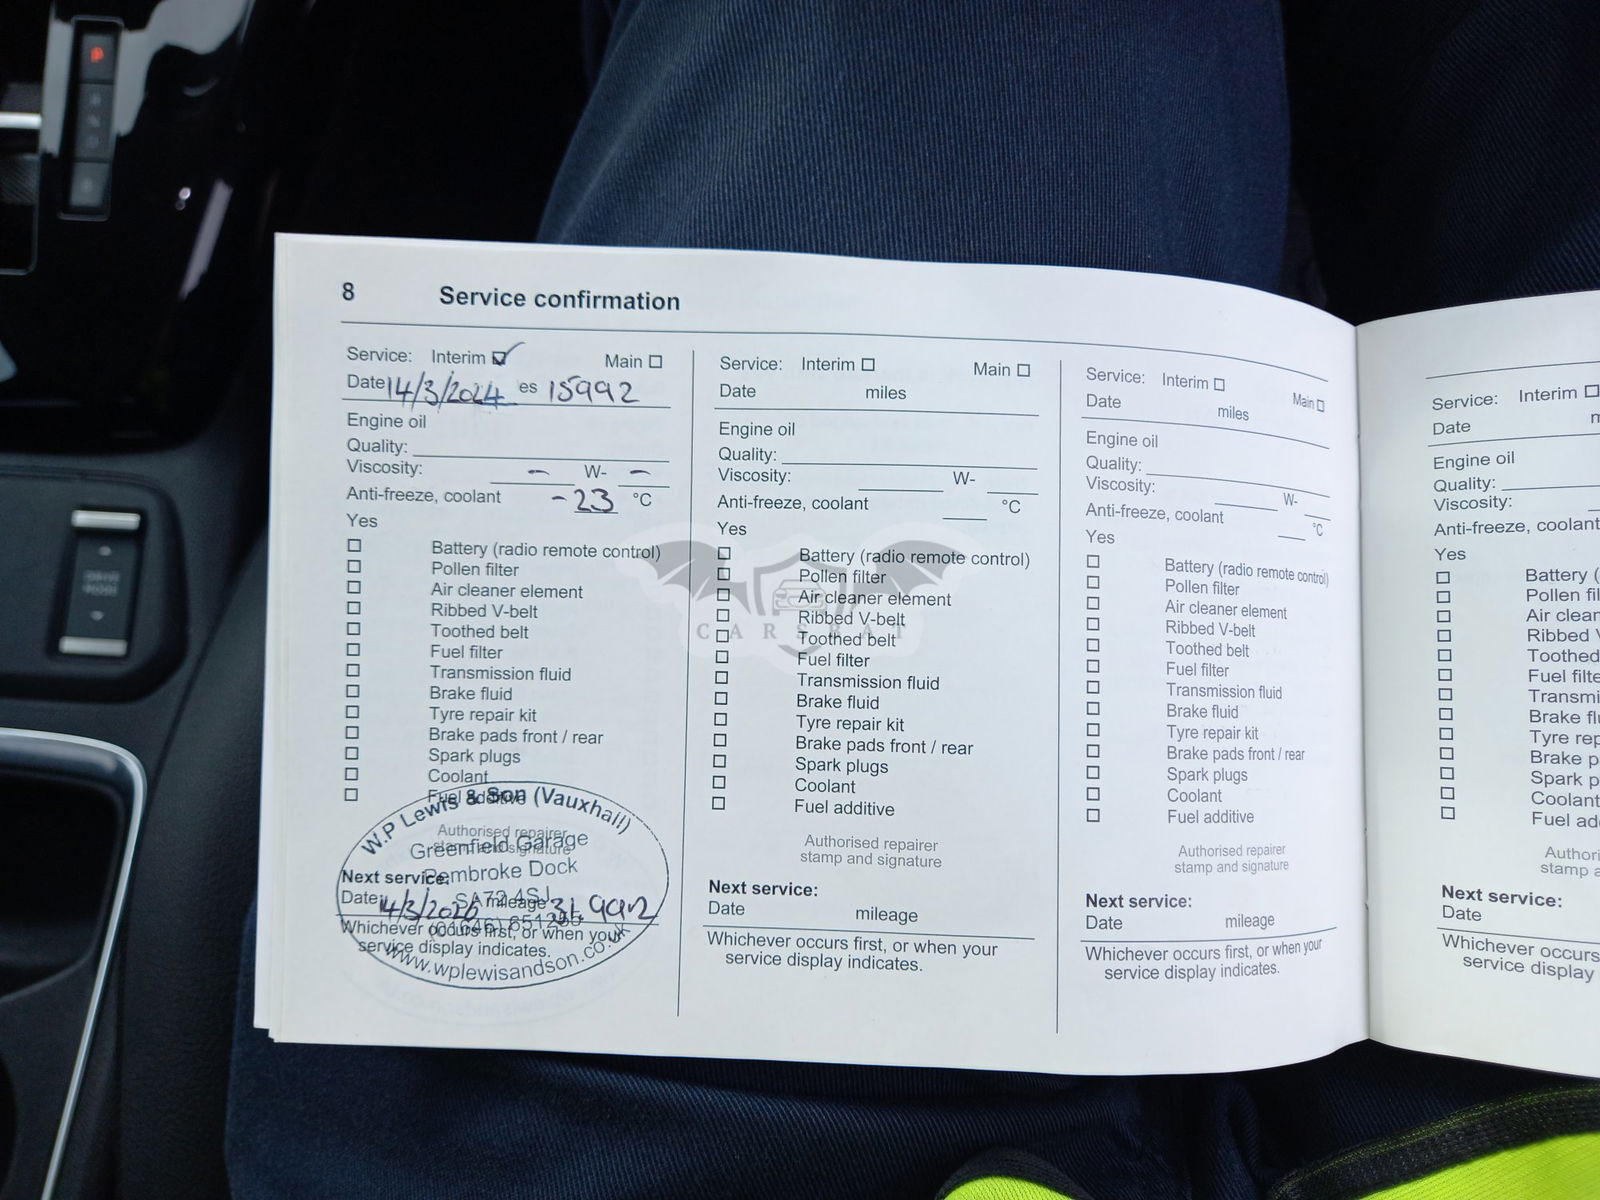 P
N
D
DRIVE
MODE
8 Service confirmation
Service: Interim Main
Date 14/3/2024 es 15992
Engine oil
Quality:
Viscosity: - W- -
Anti-freeze, coolant -23 °C
Yes
Battery (radio remote control)
Pollen filter
Air cleaner element
Ribbed V-belt
Toothed belt
Fuel filter
Transmission fluid
Brake fluid
Tyre repair kit
Brake pads front / rear
Spark plugs
Coolant
Fuel additive
Authorised repairer
stamp and signature
W.P Lewis & Son (Vauxhall)
Greenfield Garage
Pembroke Dock
SA72 4SJ
(01646) 651255
www.wplewisandson.co.uk
Next service:
Date 14/3/2026 mileage 31,992
Whichever occurs first, or when your
service display indicates.
Service: Interim Main
Date miles
Engine oil
Quality:
Viscosity: W-
Anti-freeze, coolant °C
Yes
Battery (radio remote control)
Pollen filter
Air cleaner element
Ribbed V-belt
Toothed belt
Fuel filter
Transmission fluid
Brake fluid
Tyre repair kit
Brake pads front / rear
Spark plugs
Coolant
Fuel additive
Authorised repairer
stamp and signature
Next service:
Date mileage
Whichever occurs first, or when your
service display indicates.
Service: Interim Main
Date miles
Engine oil
Quality:
Viscosity: W-
Anti-freeze, coolant °C
Yes
Battery (radio remote control)
Pollen filter
Air cleaner element
Ribbed V-belt
Toothed belt
Fuel filter
Transmission fluid
Brake fluid
Tyre repair kit
Brake pads front / rear
Spark plugs
Coolant
Fuel additive
Authorised repairer
stamp and signature
Next service:
Date mileage
Whichever occurs first, or when your
service display indicates.
Service: Interim
Date m
Engine oil
Quality:
Viscosity:
Anti-freeze, coolant
Yes
Battery (
Pollen fil
Air clean
Ribbed V
Toothed
Fuel filte
Transmi
Brake flu
Tyre rep
Brake p
Spark p
Coolant
Fuel ad
Authori
stamp a
Next service:
Date
Whichever occurs
service display
CARSBAT